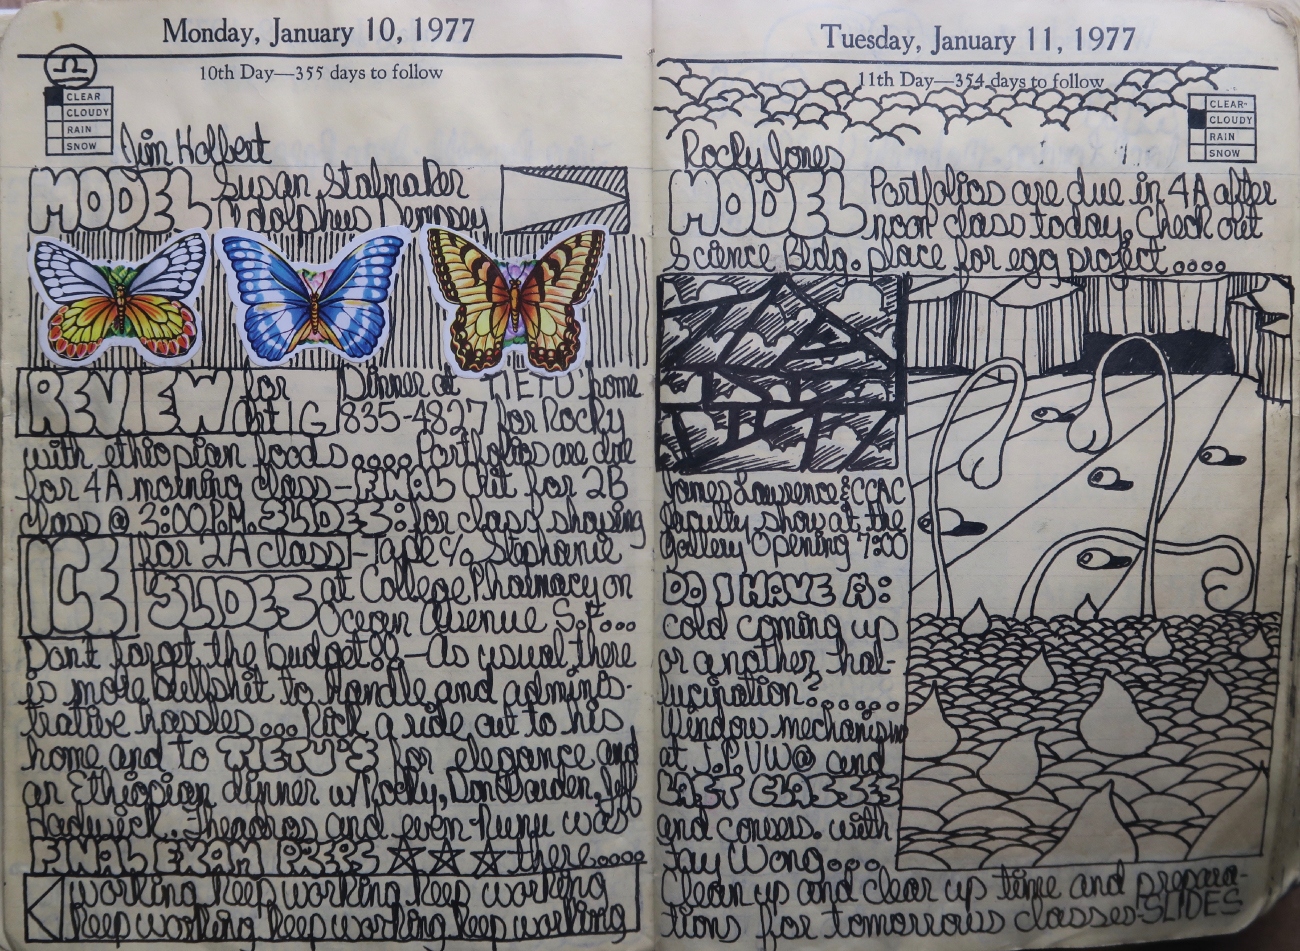 Monday, January 10, 1977
10th Day—355 days to follow
CLEAR
CLOUDY
RAIN
SNOW
Jim Holbert
MODEL Susan Stalnaker
Adolphus Dempsey
REVIEW for Dinner at TIETU home
835-4827 for Rocky
with ethiopian foods.... Portfolios are due
for 4A morning class-FINAL Crit for 2B
class @ 2:00 P.M. SLIDES: for class showing
ICE for 2A class-Tape c/o Stephanie
SLIDES at College Pharmacy on
Ocean Avenue S.F...
Don't forget the budget!!-As usual there
is more bullshit to handle and adminis-
trative hassles... Rick a ride out to his
home and to TIETU'S for elegance and
an Ethiopian dinner w/Rocky, Don Darden, Jeff
Hadwick. Theadros and even Nunu was
FINAL EXAM PREPS there.....
working keep working keep working
keep working keep working keep working
Tuesday, January 11, 1977
11th Day—354 days to follow
CLEAR
CLOUDY
RAIN
SNOW
Rocky Jones
MODEL Portfolios are due in 4A after
noon class today. Check out
Science Bldg. place for egg project....
James Lawrence & CCAC
faculty show at the
Gallery Opening 7:00
DO I HAVE A:
cold coming up
or another hal-
lucination?.....
Window mechanism
at J.P. VW@ and
LAST CLASSES
and convers. with
Jay Wong...
Clean up and clear up time and prepara-
tions for tomorrows classes-SLIDES